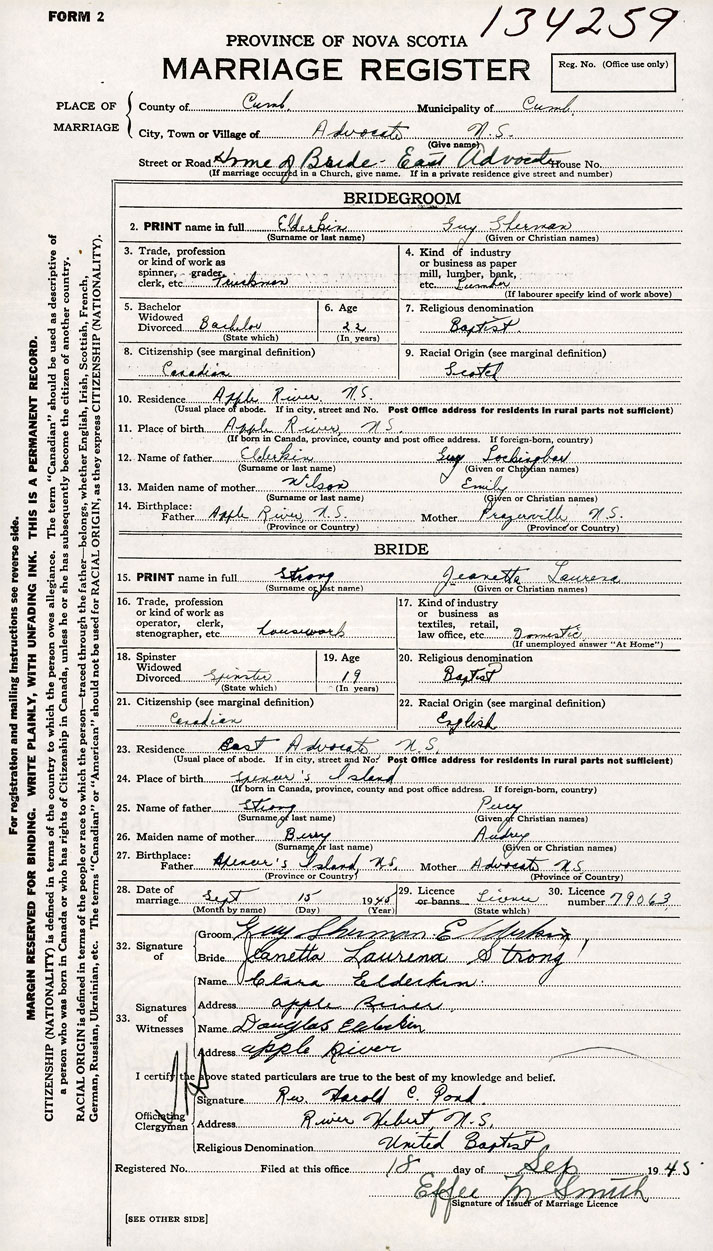 FORM 2
134259
PROVINCE OF NOVA SCOTIA
MARRIAGE REGISTER
Reg. No. (Office use only)
PLACE OF MARRIAGE
County of Cumb. Municipality of Cumb.
City, Town or Village of Advocate N.S.
(Give name)
Street or Road Home of Bride - East Advocate House No.
(If marriage occurred in a Church, give name. If in a private residence give street and number)
BRIDEGROOM
2. PRINT name in full Elderkin Guy Sherman
(Surname or last name) (Given or Christian names)
3. Trade, profession or kind of work as spinner, grader, clerk, etc. Truckman
4. Kind of industry or business as paper mill, lumber, bank, etc. Lumber
(If labourer specify kind of work above)
5. Bachelor Widowed Divorced Bachelor
(State which)
6. Age 22
(In years)
7. Religious denomination
Baptist
8. Citizenship (see marginal definition)
Canadian
9. Racial Origin (see marginal definition)
Scotch
10. Residence Apple River, N.S.
(Usual place of abode. If in city, street and No. Post Office address for residents in rural parts not sufficient)
11. Place of birth Apple River, N.S.
(If born in Canada, province, county and post office address. If foreign-born, country)
12. Name of father Elderkin Guy
(Surname or last name) (Given or Christian names)
13. Maiden name of mother Wilson Emily
(Surname or last name) (Given or Christian names)
14. Birthplace: Father Apple River, N.S. Mother N.S.
(Province or Country) (Province or Country)
BRIDE
15. PRINT name in full Strong Jeanetta Laurena
(Surname or last name) (Given or Christian names)
16. Trade, profession or kind of work as operator, clerk, stenographer, etc. housework
17. Kind of industry or business as textiles, retail, law office, etc. Domestic
(If unemployed answer "At Home")
18. Spinster Widowed Divorced Spinster
(State which)
19. Age 19
(In years)
20. Religious denomination
Baptist
21. Citizenship (see marginal definition)
Canadian
22. Racial Origin (see marginal definition)
English
23. Residence East Advocate, N.S.
(Usual place of abode. If in city, street and No. Post Office address for residents in rural parts not sufficient)
24. Place of birth Spencer's Island
(If born in Canada, province, county and post office address. If foreign-born, country)
25. Name of father Strong Percy
(Surname or last name) (Given or Christian names)
26. Maiden name of mother Berry Audrey
(Surname or last name) (Given or Christian names)
27. Birthplace: Father Spencer's Island, N.S. Mother Advocate N.S.
(Province or Country) (Province or Country)
28. Date of marriage Sept 15 1945
(Month by name) (Day) (Year)
29. Licence or banns License
(State which)
30. Licence number 79063
32. Signature of
Groom Guy Sherman Elderkin
Bride Jeanetta Laurena Strong
33. Signatures of Witnesses
Name Clara Elderkin
Address apple River
Name Douglas Elderkin
Address apple River
I certify the above stated particulars are true to the best of my knowledge and belief.
Officiating Clergyman
Signature Rev. Harold C. Pond
Address River Hebert, N.S.
Religious Denomination United Baptist
Registered No. Filed at this office 18 day of Sep 1945
Effee M Smith
Signature of Issuer of Marriage Licence
[SEE OTHER SIDE]
For registration and mailing instructions see reverse side.
MARGIN RESERVED FOR BINDING. WRITE PLAINLY, WITH UNFADING INK. THIS IS A PERMANENT RECORD.
CITIZENSHIP (NATIONALITY) is defined in terms of the country to which the person owes allegiance. The term "Canadian" should be used as descriptive of
a person who was born in Canada or who has rights of Citizenship in Canada, unless he or she has subsequently become the citizen of another country.
RACIAL ORIGIN is defined in terms of the people or race to which the person—traced through the father—belongs, whether English, Irish, Scottish, French,
German, Russian, Ukrainian, etc. The terms "Canadian" or "American" should not be used for RACIAL ORIGIN, as they express CITIZENSHIP (NATIONALITY).